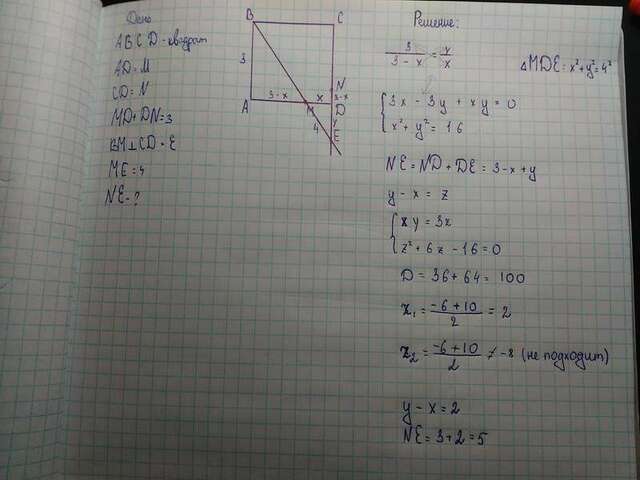 Дано
ABCD - квадрат
AD = M
CD = N
MD + DN = 3
BM ⊥ CD = E
ME = 4
NE - ?
B
C
3
N
3-x
x
3-x
A
M
D
y
4
E
Решение:
3/(3-x) = y/x
△MDE: x² + y² = 4²
{ 3x - 3y + xy = 0
x² + y² = 16
NE = ND + DE = 3 - x + y
y - x = z
{ xy = 3z
z² + 6z - 16 = 0
D = 36 + 64 = 100
z₁ = (-6 + 10)/2 = 2
z₂ = (-6 + 10)/2 ≠ -8 (не подходит)
y - x = 2
NE = 3 + 2 = 5